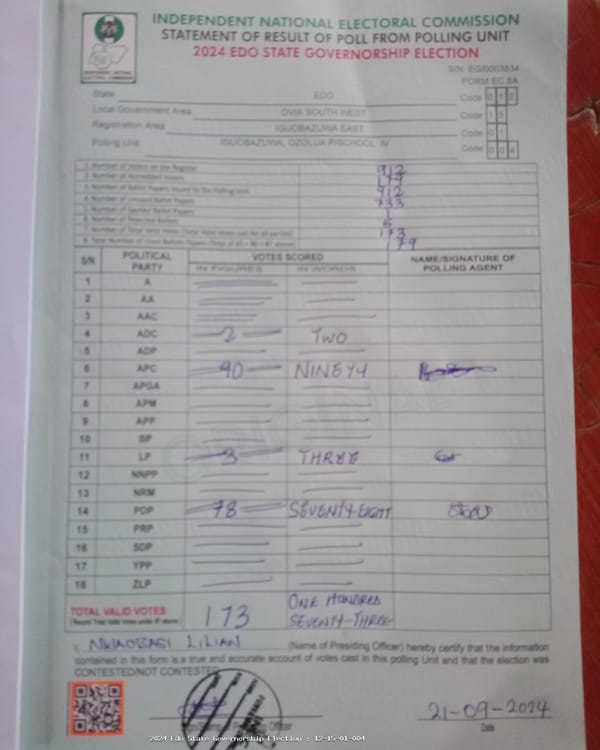 INDEPENDENT NATIONAL ELECTORAL COMMISSION
STATEMENT OF RESULT OF POLL FROM POLLING UNIT
2024 EDO STATE GOVERNORSHIP ELECTION
FORM EC 8A
State EDO Code 0 1 2
Local Government Area OVIA SOUTH WEST Code 1 5
Registration Area IGUOBAZUWA EAST Code 0 1
Polling Unit IGUOBAZUWA, OZOLUA P/SCHOOL IV Code 0 0 4
1 Number of Voters on the Register 912
2 Number of Accredited Voters 179
3 Number of Ballot Papers Issued to the Polling Unit 912
4 Number of Unused Ballot Papers 733
5 Number of Spoiled Ballot Papers 1
6 Number of Rejected Ballots 5
7 Number of Total Valid Votes (Total Valid Votes cast for all parties) 173
8 Total Number of Used Ballots Papers (Total of #5 + #6 + #7 above) 179
S/N POLITICAL PARTY VOTES SCORED NAME/SIGNATURE OF POLLING AGENT
IN FIGURES IN WORDS
1 A
2 AA
3 AAC
4 ADC 2 TWO
5 ADP
6 APC 90 NINETY
7 APGA
8 APM
9 APP
10 BP
11 LP 3 THREE
12 NNPP
13 NRM
14 PDP 78 SEVENTY-EIGHT
15 PRP
16 SDP
17 YPP
18 ZLP
TOTAL VALID VOTES 173 ONE HUNDRED
(Record Total Valid Votes under #7 above) SEVENTY-THREE
I, NWAOBASI LILIAN (Name of Presiding Officer) hereby certify that the information
contained in this form is a true and accurate account of votes cast in this polling Unit and that the election was
CONTESTED/NOT CONTESTED
21-09-2024
Date
2024 Edo State Governorship Election : 12-15-01-004